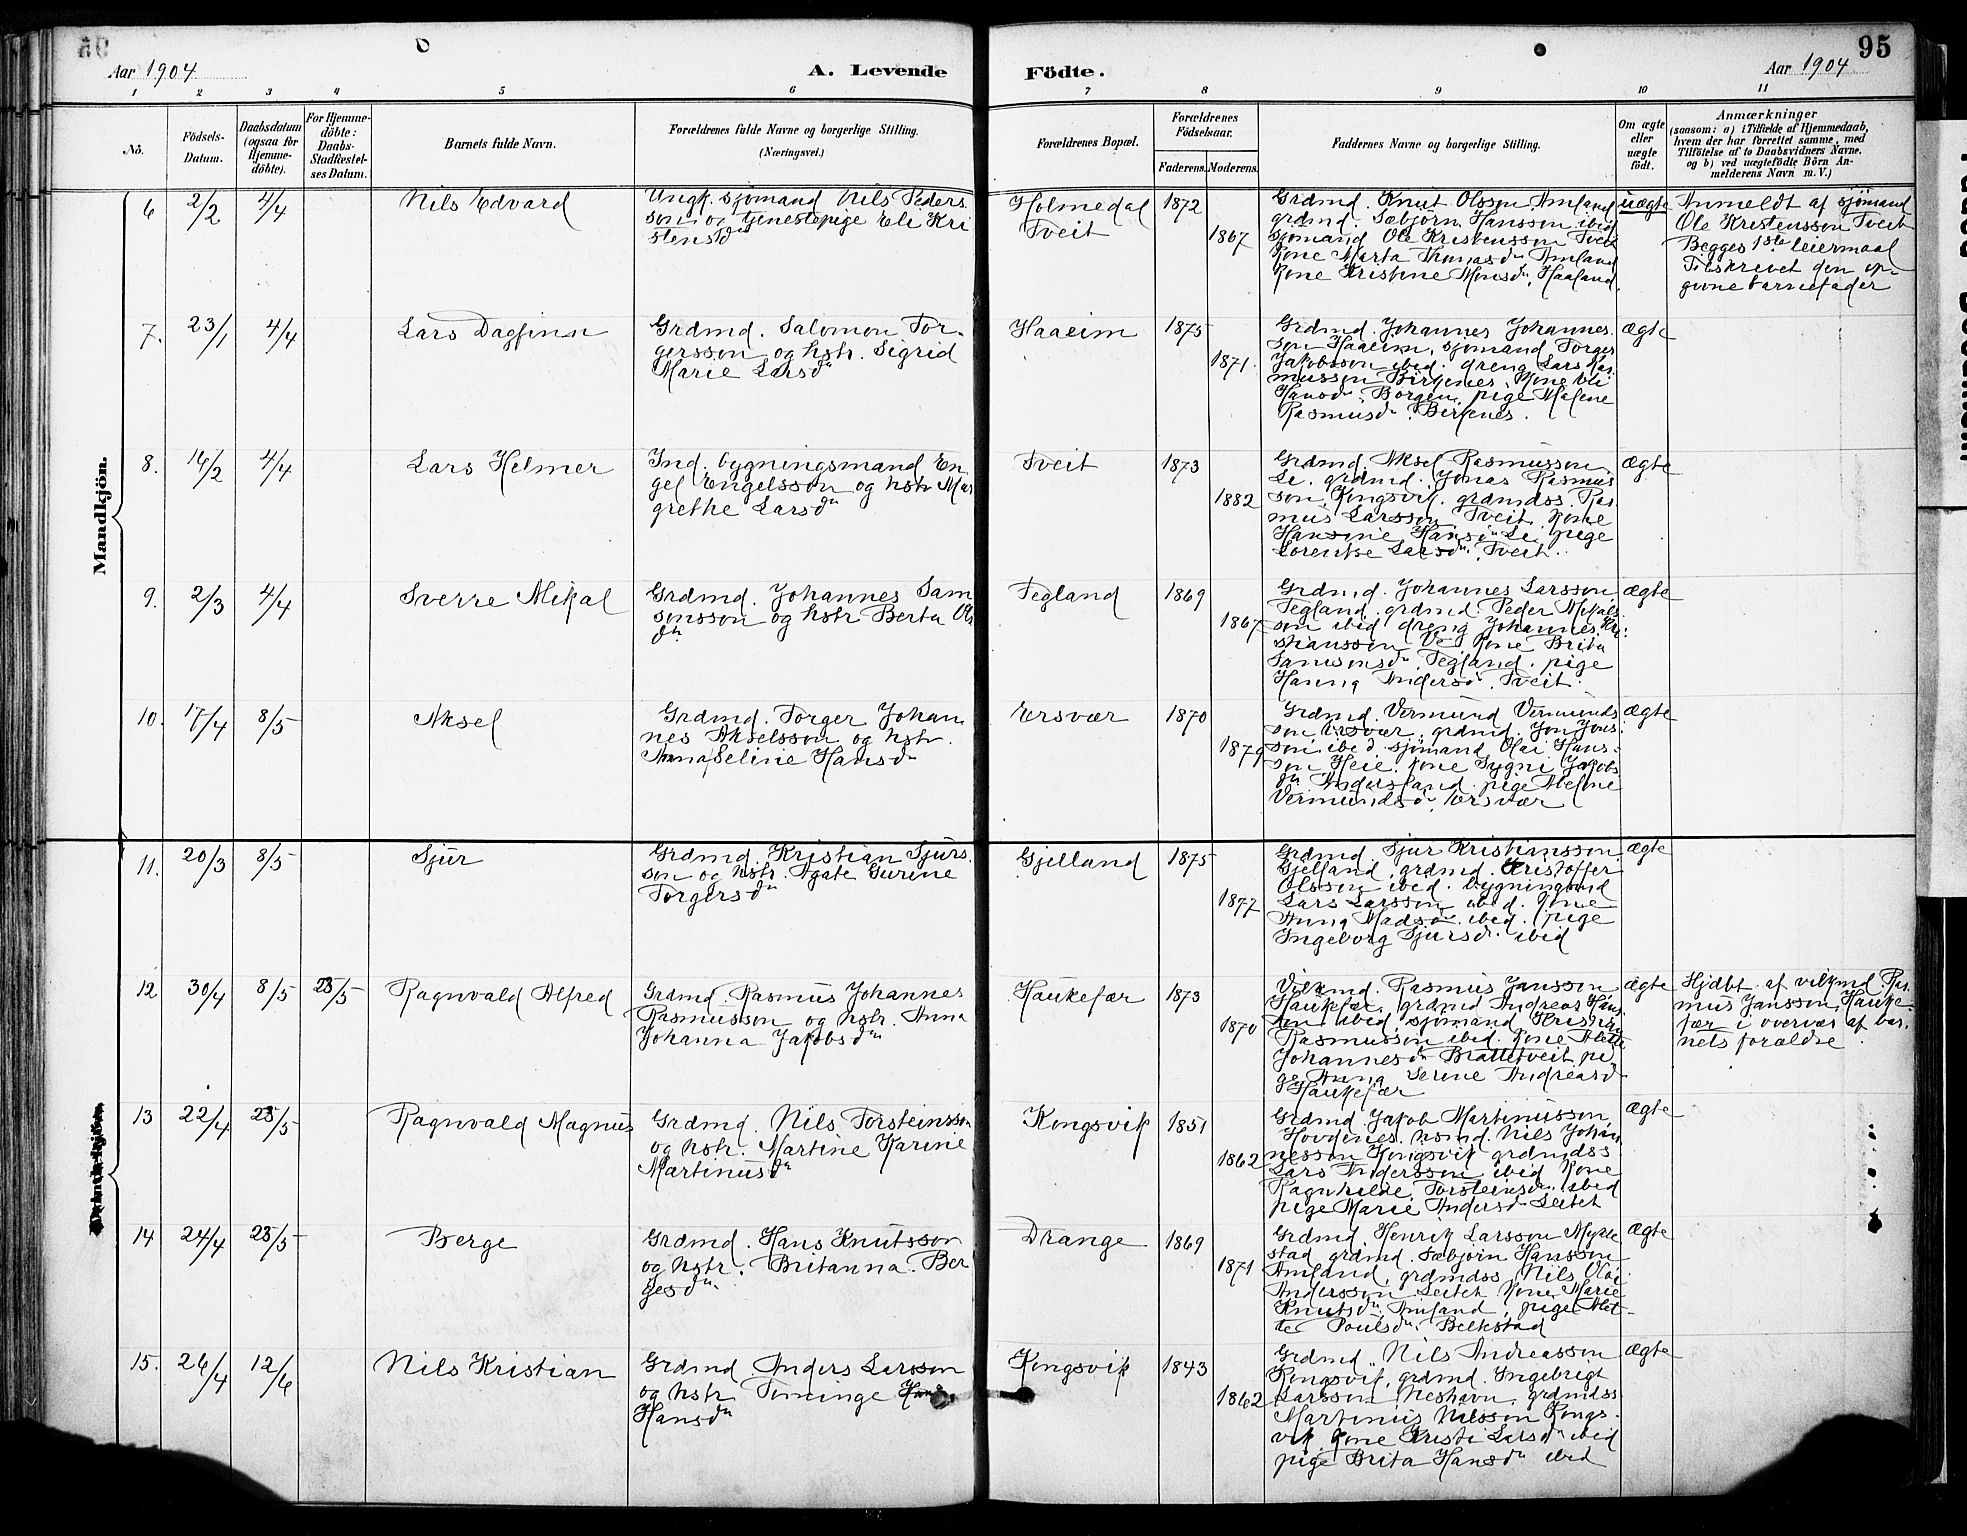 95
Aar 1904
A. Levende
Födte.
Aar 1904
1 2 3 4 5 6 7 8 9 10 11
No.
Födsels-
Datum.
Daabsdatum
(ogsaa for
Hjemme-
döbte).
For Hjemme-
döbte:
Daabs-
Stadfæstel-
ses Datum.
Barnets fulde Navn.
Forældrenes fulde Navne og borgerlige Stilling.
(Næringsvei.)
Forældrenes Bopæl.
Forældrenes
Födselsaar.
Faderens.
Moderens.
Faddernes Navne og borgerlige Stilling.
Om ægte
eller
uægte
födt.
Anmærkninger
(saasom: a) i Tilfælde af Hjemmedaab,
hvem der har forrettet samme, med
Tilföielse af to Daabsvidners Navne.
og b) ved uægtefödte Börn An-
melderens Navn m. V.)
Mandkjön.
6 2/2 4/4 Nils Edvard
Ungk. sjømand Nils Peders
søn og tjenestepige Eli Kri
stensdr
Holmedal
Tveit
1872
1867
Grdmd. Knut Olsson Amland
grdmd. Sæbjörn Hansson ibid
sjømand Ole Kristensson Tveit
Kone Marta Thomasdr Amland
Kone Kristine Monsdr. Haaland.
uægte
Anmeldt af sjömand
Ole Kristensson Tveit
Begges 1ste leiermaal
Tilskrevet den op-
givne barnefader
7. 23/1 4/4 Lars Dagfinn
Grdmd. Salomon Tor-
gersson og hstr. Sigrid
Marie Larsdr
Haaeim
1875
1871.
Grdmd. Johannes Johannes
søn Haaeim, sjømand Torger
Jakobsson ibid. dreng Lars Ras
mussen Birkenes. Kone Eli
Hansdr. Borgen. pige Malene
Rasmusdr. Birkenes.
ægte
8. 14/2 4/4 Lars Helmer
Ind. bygningsmand En
gel Engelsson og hstr Mar
grethe Larsdr
Tveit
1873
1882
Grdmd. Aksel Rasmusson
Le. grdmd. Jonas Rasmus
son Kongsvik. grdmdss. Ras
mus Larsson Tveit. Kone
Hansine Hansdr Le. pige
Lorentse Larsdr. Tveit.
ægte
9. 2/3 4/4 Sverre Mikal
Grdmd. Johannes Sam
sonsson og hstr Berta Ols
dr
Tegland
1869
1867
Grdmd. Johannes Larsson
Tegland. grdmd. Peder Mikals
son ibid dreng Johannes Kri-
stiansson Ve. Kone Brita
Samsonsdr. Tegland. pige
Hanna Andersdr. Tveit.
ægte
10. 17/4 8/5 Aksel
Grdmd. Torger Johan
nes Akselsson og hstr.
Anna Seline Hansdr
Ersvær
1870
1879
Grdmd. Vermund Vermunds
son Ersvær, grdmd. Jon Jons
son, ibid. sjömand Olai Hans-
son Heie. Kone Sygni Jakobs
dr Andersland. pige Malene
Vermundsdr. Ersvær
ægte
11. 20/3 8/5 Sjur
Grdmd. Kristian Sjurs
son og hstr. Agate Gurine
Torgersdr
Gjelland
1875
1877
Grdmd. Sjur Kristiansson
Gjelland. grdmd. Kristoffer
Olsson ibid. bygningsmd
Lars Larsson ibid. Kone
Anna Madsdr. ibid. pige
Ingeborg Sjursdr. ibid
ægte
12 30/4 8/5 23/5 Ragnvald Alfred
Grdmd. Rasmus Johannes
Rasmusson og hstr. Anna
Johanna Jakobsdr
Haukefær
1873
1870
Vilkmd. Rasmus Jansson
Haukefær, grdmd Andreas Hans
son ibid. sjømand Kristian
Rasmusson ibid. Kone Alette
Johannesdr Brattetveit pi
ge Anna Serine Andreasdr
Haukefær
ægte
Hjdbt. af vilkmd Ras
mus Jansson, Hauke-
fær i overvær af bar-
nets forældre.
13 22/4 23/5 Ragnvald Magnus
Grdmd. Nils Torsteinsson
og hstr. Martine Karine
Martinusdr
Kongsvik
1851
1862
Grdmd Jakob Martinusson,
Hovdenes. hsmd. Nils Johan
nesson Kongsvik grdmdss
Lars Andersson ibid Kone
Ragnhilde Torsteinsdr. ibid
pige Marie Andersdr Seitet
ægte
14 24/4 23/5 Berge
Grdmd. Hans Knutsson
og hstr. Britanna. Ber
gesdr.
Drange
1869
1871
Grdmd. Henrik Larsson Mykle
stad grdmd. Sæbjörn Hansson
Amland, grdmdss Nils Olai
Andersson Seitet Kone Marie
Knutsdr. Amland, pige Met-
te Poulsdr. Belkstad
ægte
15. 26/4 12/6 Nils Kristian
Grdmd Anders Larsson
og hstr Tominge
Hansdr
Kongsvik
1843
1862
Grdmd. Nils Andreasson
Kongsvik, grdmd. Ingebrigt
Larsson Neshavn, grdmdss.
Martinus Nilsson Kongs-
vik. Kone Kristi Larsdr ibid
pige Brita Hansdr ibid
ægte